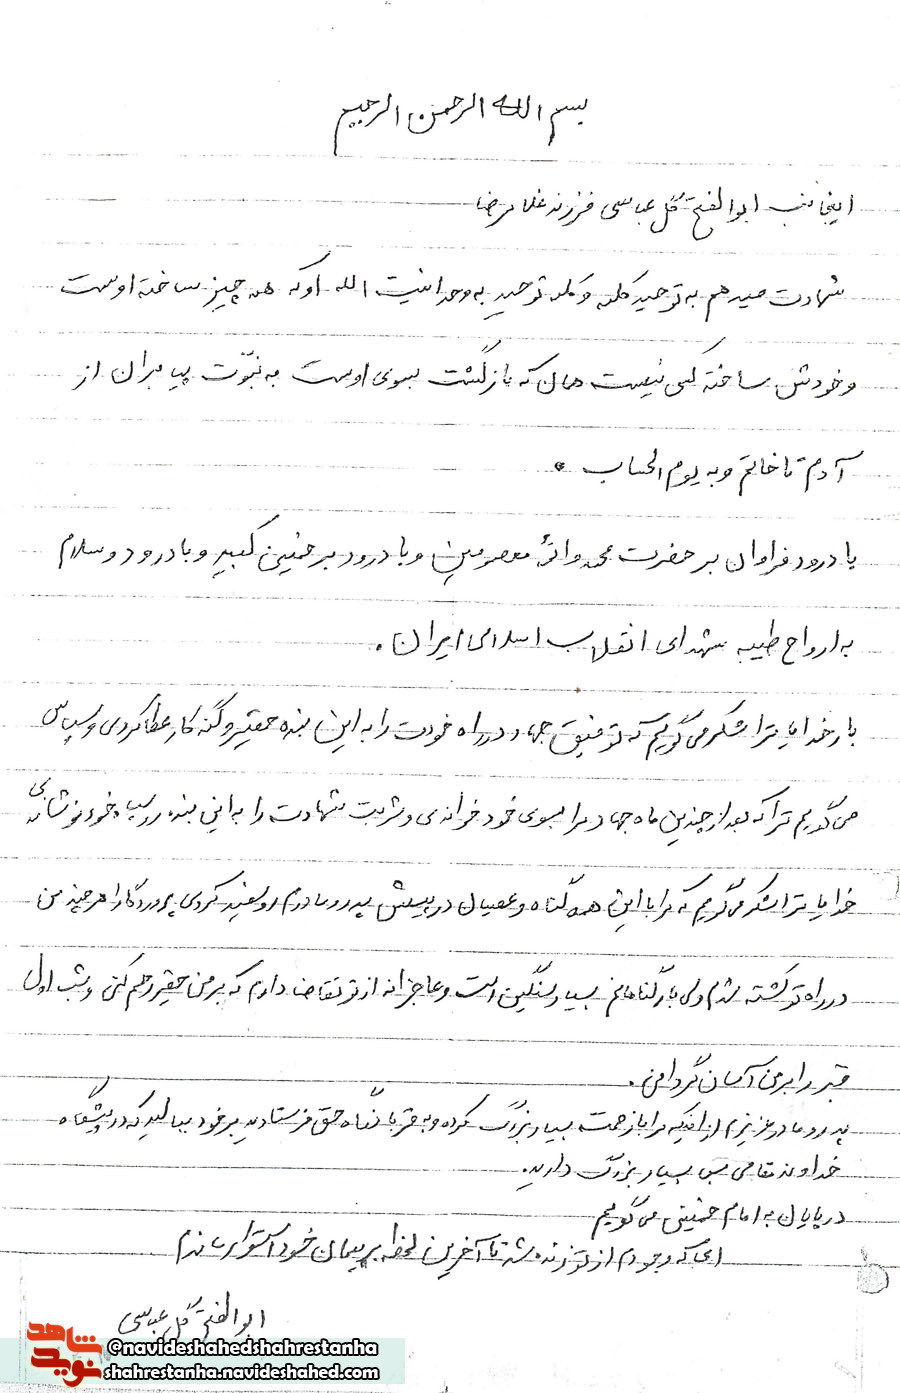 بسم الله الرحمن الرحیم
اینجانب ابوالفتح گل عباسی فرزند غلامرضا
شهادت میدهم به توحید کلمه و کلمه توحید به وحدانیت الله او که همه چیز ساخته اوست
و خودش ساخته کسی نیست همان که بازگشت بسوی اوست به نبوّت پیامبران از
آدم تا خاتم و به یوم الحساب .
با درود فراوان بر حضرت محمد و ائمهٔ معصومین و با درود بر خمینی کبیر و با درود و سلام
به ارواح طیبه شهدای انقلاب اسلامی ایران .
بار خدایا ترا شکر می گویم که توفیق جهاد در راه خودت را به این بنده حقیر و گنه کار عطا کردی و سپاس
می گویم ترا که بعد از چندین ماه جهاد مرا بسوی خود خواندی و شربت شهادت را به این بنده رو سیاه خود نوشاندی
خدایا ترا شکر می گویم که مرا با این همه گناه و عصیان در پیش پدر و مادرم رو سفید کردی پروردگارا هر چند من
در راه تو کشته شدم ولی بار گناهانم بسیار سنگین است و عاجزانه از تو تقاضا دارم که بر من حقیر رحم کنی و شب اول
قبر را بر من آسان گردانی .
پدر و مادر عزیزم از اینکه مرا با زحمت بسیار بزرگ کرده و به قربانگاه حق فرستادید بر خود ببالید که در پیشگاه
خداوند مقامی بس بسیار بزرگ دارید.
در پایان به امام خمینی می گویم
ای که وجودم از تو زنده شد تا آخرین لحظه بر پیمان خود استوار ماندم
ابوالفتح گل عباسی
نوید شاهد
@navideshahedshahrestanha
shahrestanha.navideshahed.com